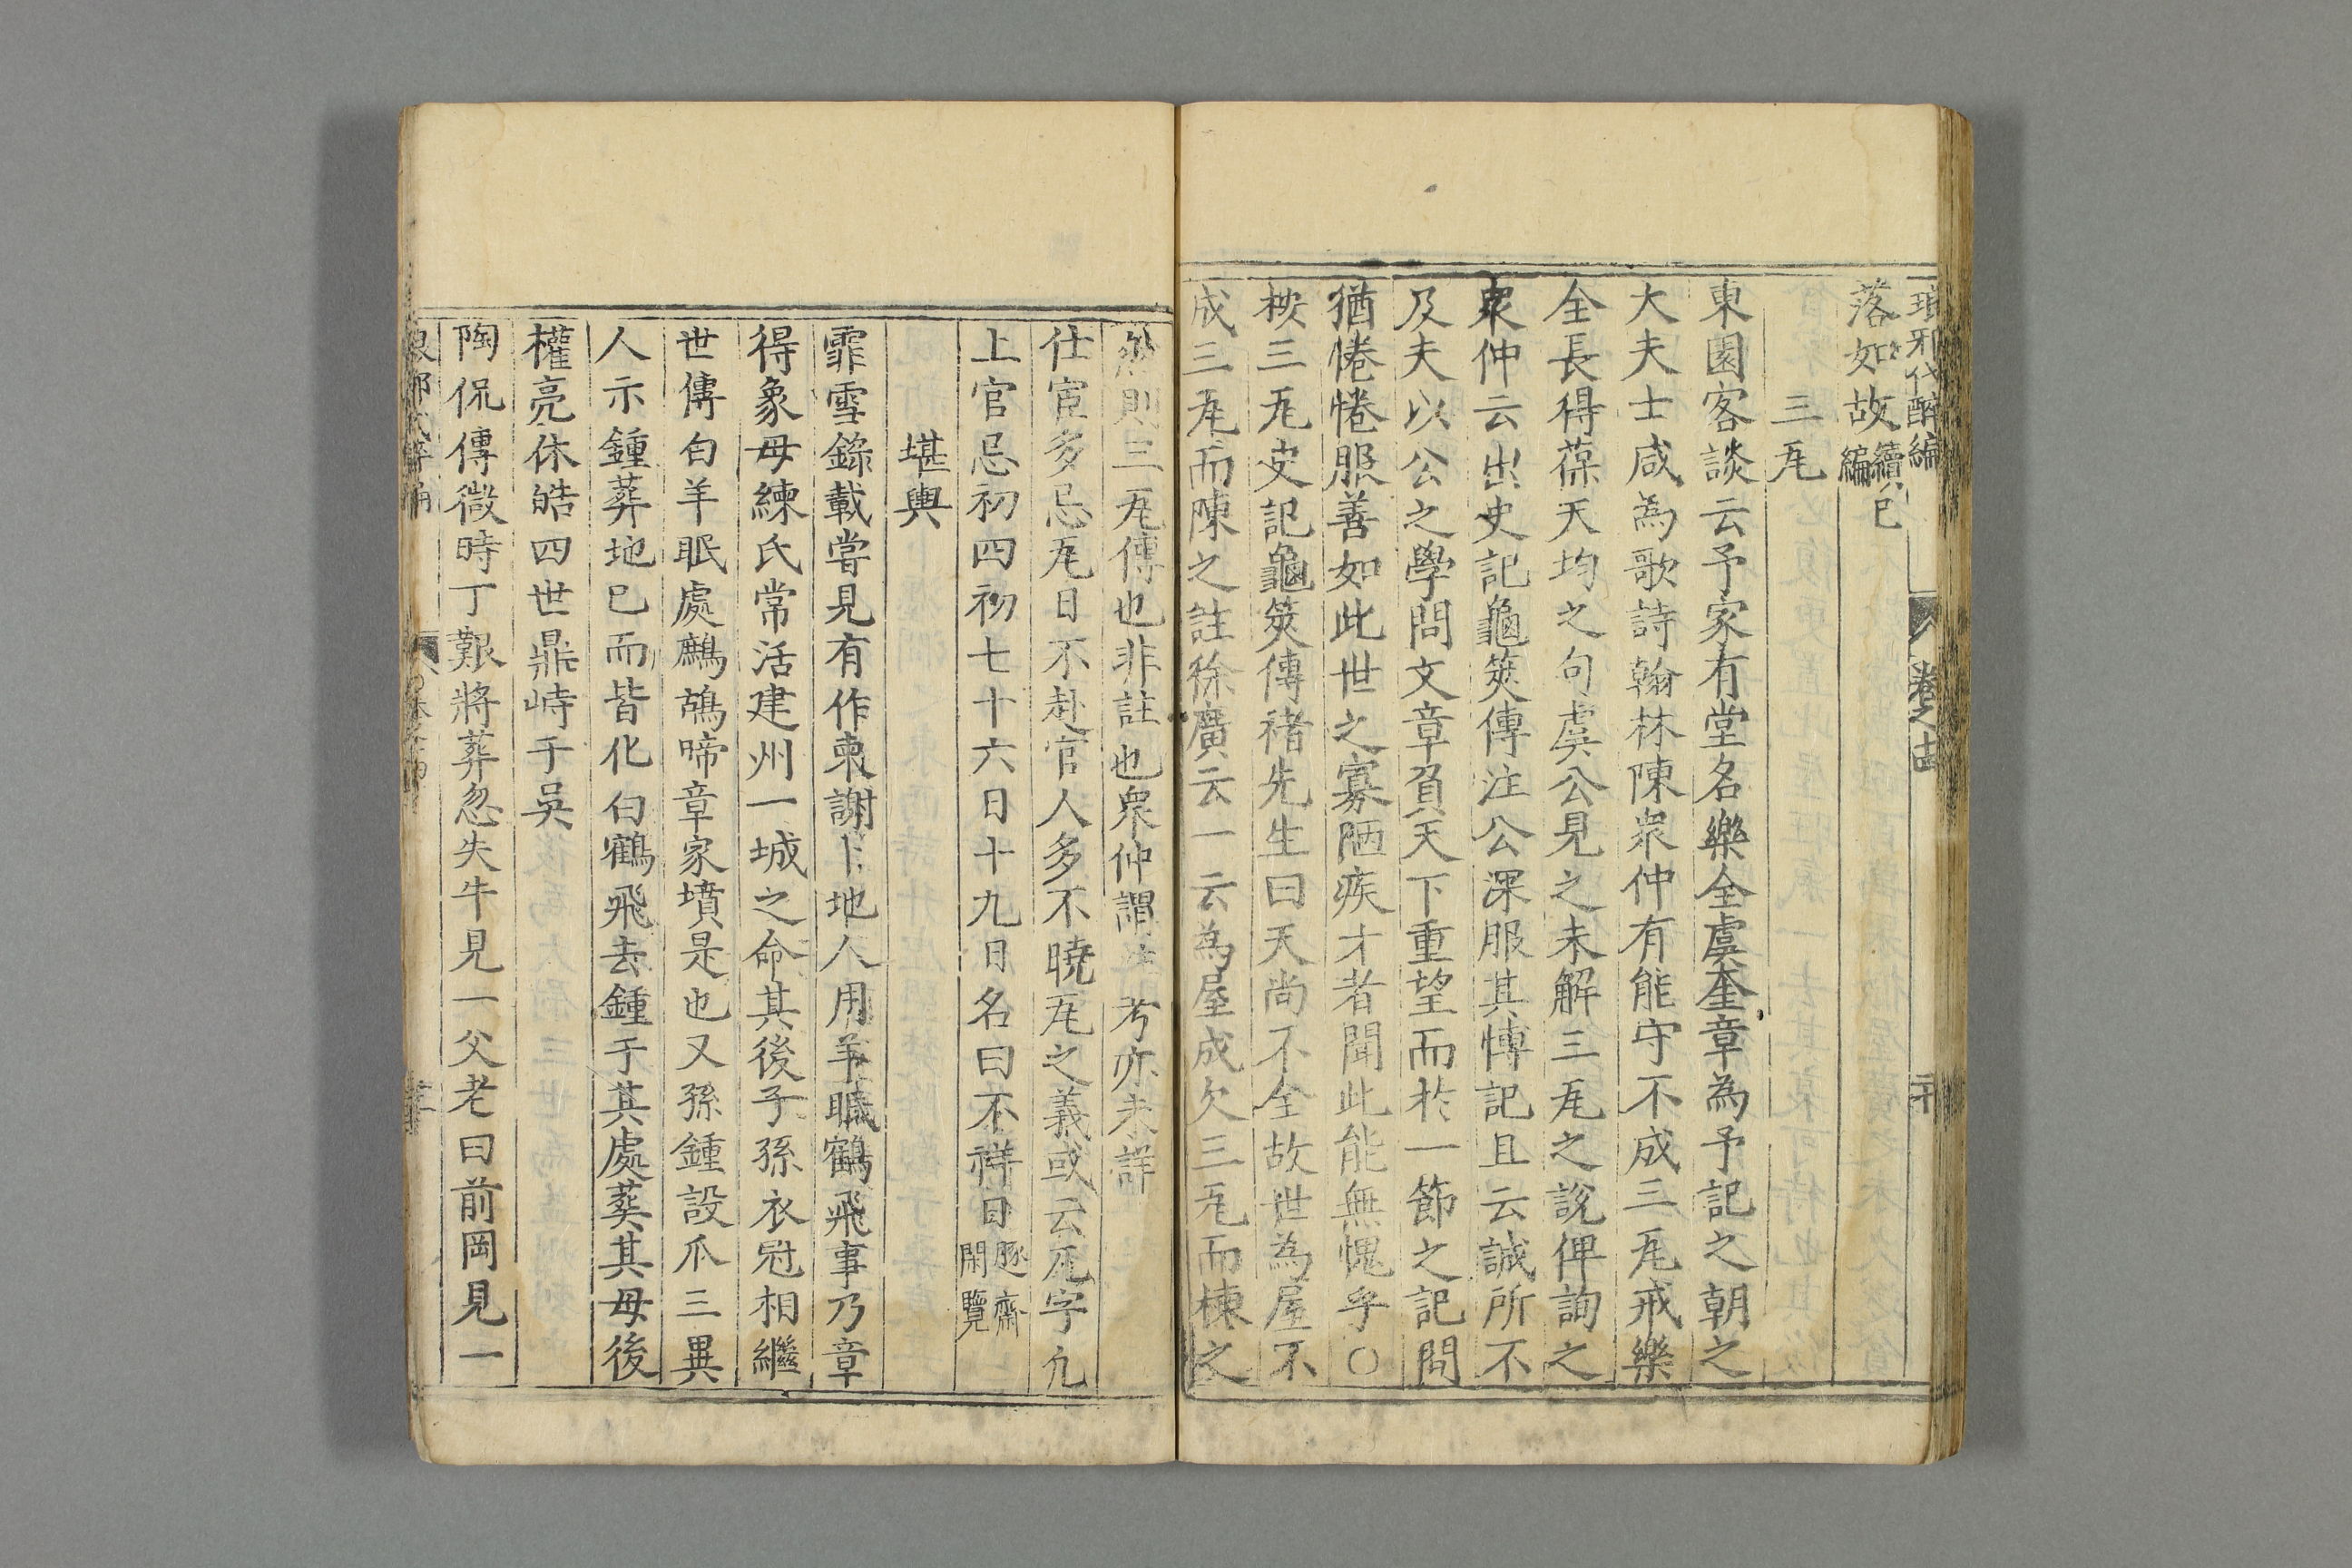 琅邪代醉編 卷之
落如故續己編
三瓦
東園客談云予家有堂名樂全虞奎章為予記之朝之
大夫士咸為歌詩翰林陳衆仲有能守不成三瓦戒樂
全長得葆天均之句虞公見之未解三瓦之說俾詢之
衆仲云出史記龜筴傳注公深服其愽記且云誠所不
及夫以公之學問文章負天下重望而於一節之記問
猶惓惓服善如此世之寡陋疾才者聞此能無愧乎〇
桉三瓦史記龜筴傳禇先生曰天尚不全故世為屋不
成三瓦而陳之註徐廣云一云為屋成欠三瓦而棟之
然則三瓦傳也非註也衆仲謂 考亦未詳
仕宦多忌瓦日不赴官人多不曉瓦之義或云瓦字凢
上官忌初四初七十六日十九日名曰不祥日豚齋閑覽
堪輿
霏雪錄載嘗見有作柬謝卜地人用羊眠鶴飛事乃章
得象母練氏常活建州一城之命其後子孫衣冠相繼
世傳白羊眠處鷓鴣啼章家墳是也又孫鍾設爪三異
人示鍾葬地已而皆化白鶴飛去鍾于其處葬其母後
權亮休皓四世鼎峙于吳
陶侃傳微時丁艱將葬忽失牛見一父老曰前岡見一